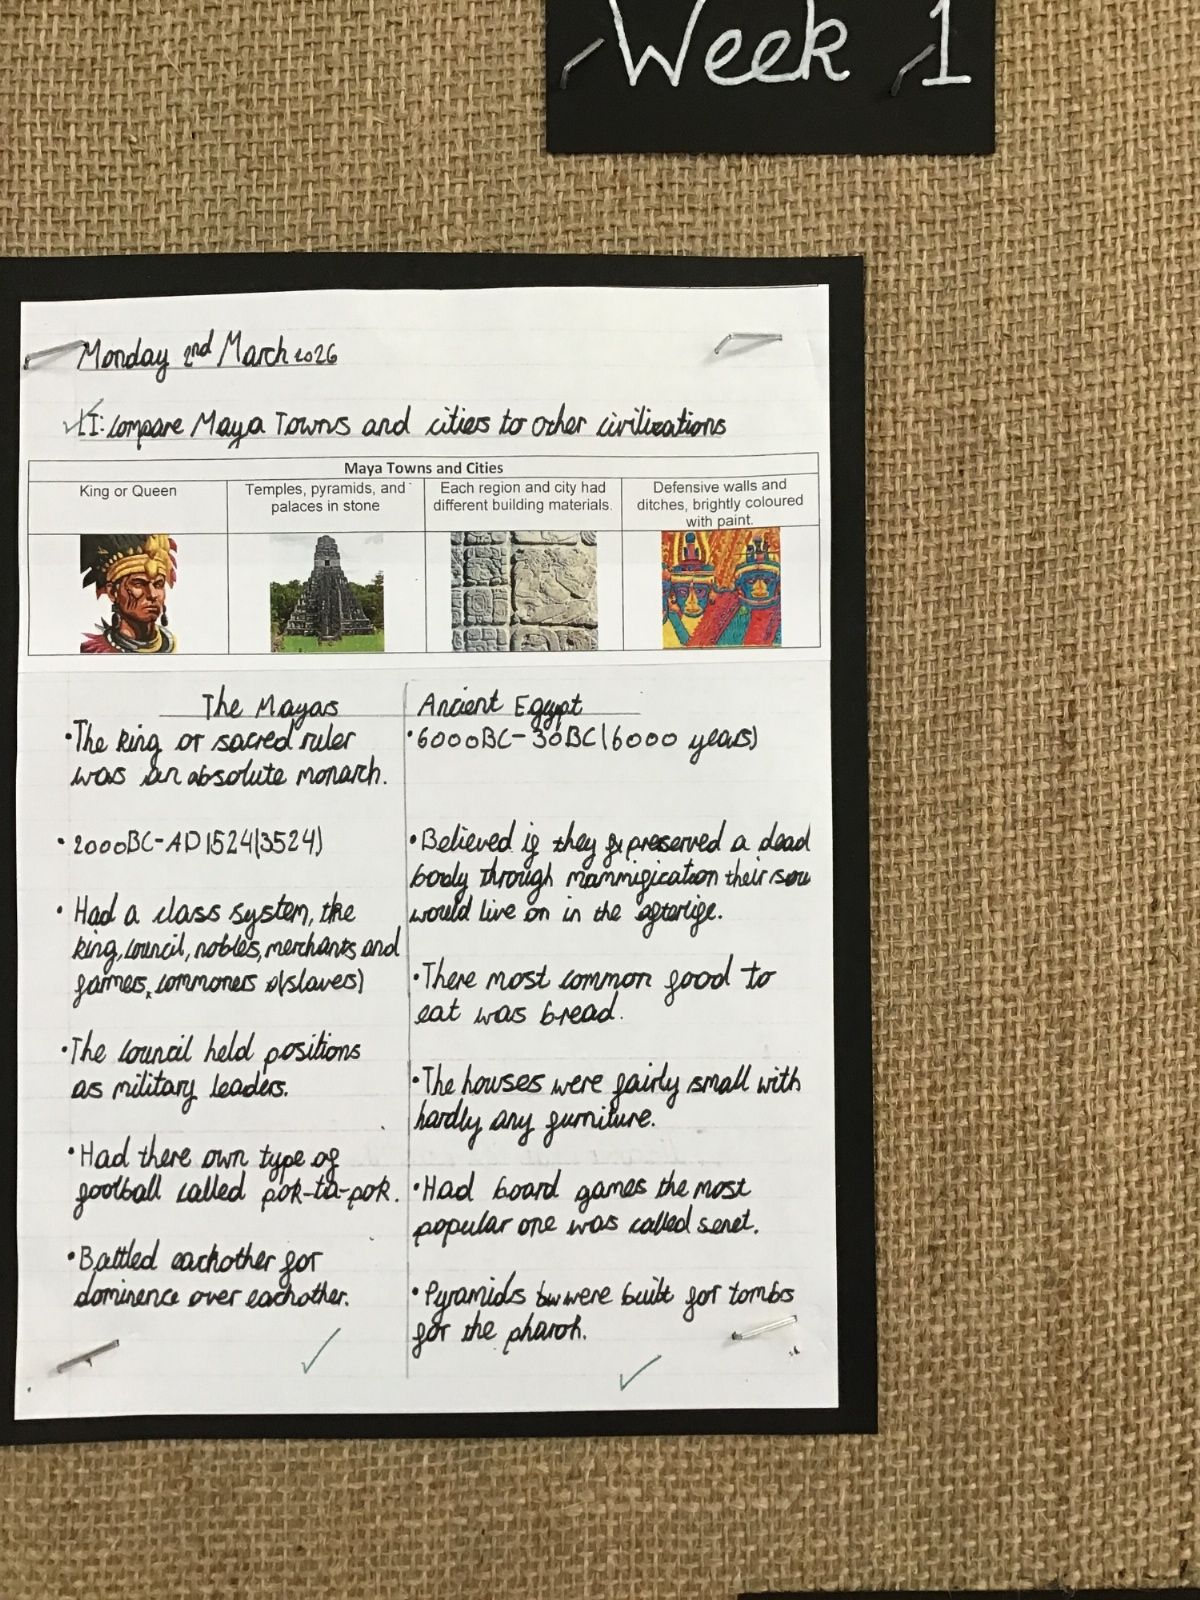 Week 1
Monday 2nd March 2026
LI: Compare Maya Towns and cities to other civilizations
Maya Towns and Cities
King or Queen
Temples, pyramids, and palaces in stone
Each region and city had different building materials.
Defensive walls and ditches, brightly coloured with paint.
The Mayas
• The king or sacred ruler
was an absolute monarch.
• 2000BC-AD1524(3524)
• Had a class system, the
king, council, nobles, merchants and
farmers, commoners (slaves)
• The council held positions
as military leaders.
• Had there own type of
football called pok-ta-pok.
• Battled eachother for
dominence over eachother.
Ancient Egypt
• 6000BC-30BC(6000 years)
• Believed if they preserved a dead
body through mammification their sou
would live on in the afterlife.
• There most common food to
eat was bread.
• The houses were fairly small with
hardly any furniture.
• Had board games the most
popular one was called senet.
• Pyramids were built for tombs
for the pharoh.